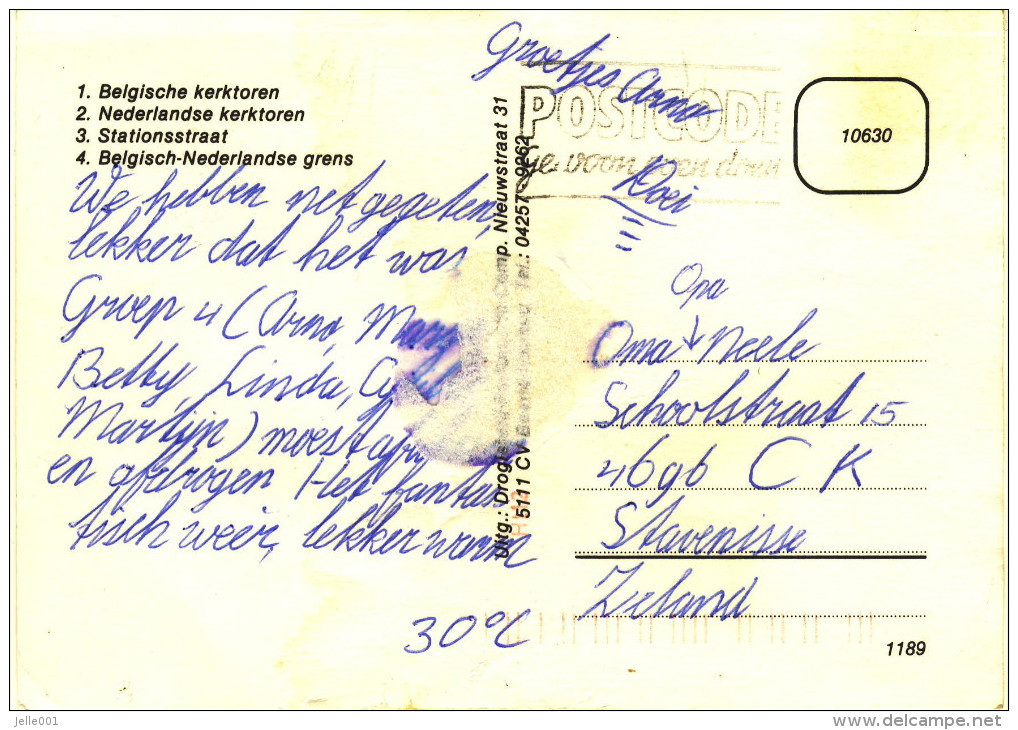 1. Belgische kerktoren
2. Nederlandse kerktoren
3. Stationsstraat
4. Belgisch-Nederlandse grens
We hebben net gegeten,
lekker dat het was
Groep 4 (Arno,
Betty, Linda,
Martijn) moest
en afdrogen Het fantas
tisch weer, lekker warm
30°C
Groetjes Arno
Doei
POSTCODE
10630
Uitg.: Nieuwstraat 31
5111 CV Tel.: 04257 - 9262
Opa
Oma Neele
Schoolstraat 15
4696 CK
Stavenisse
Zeland
1189
jelle001
www.delcampe.net